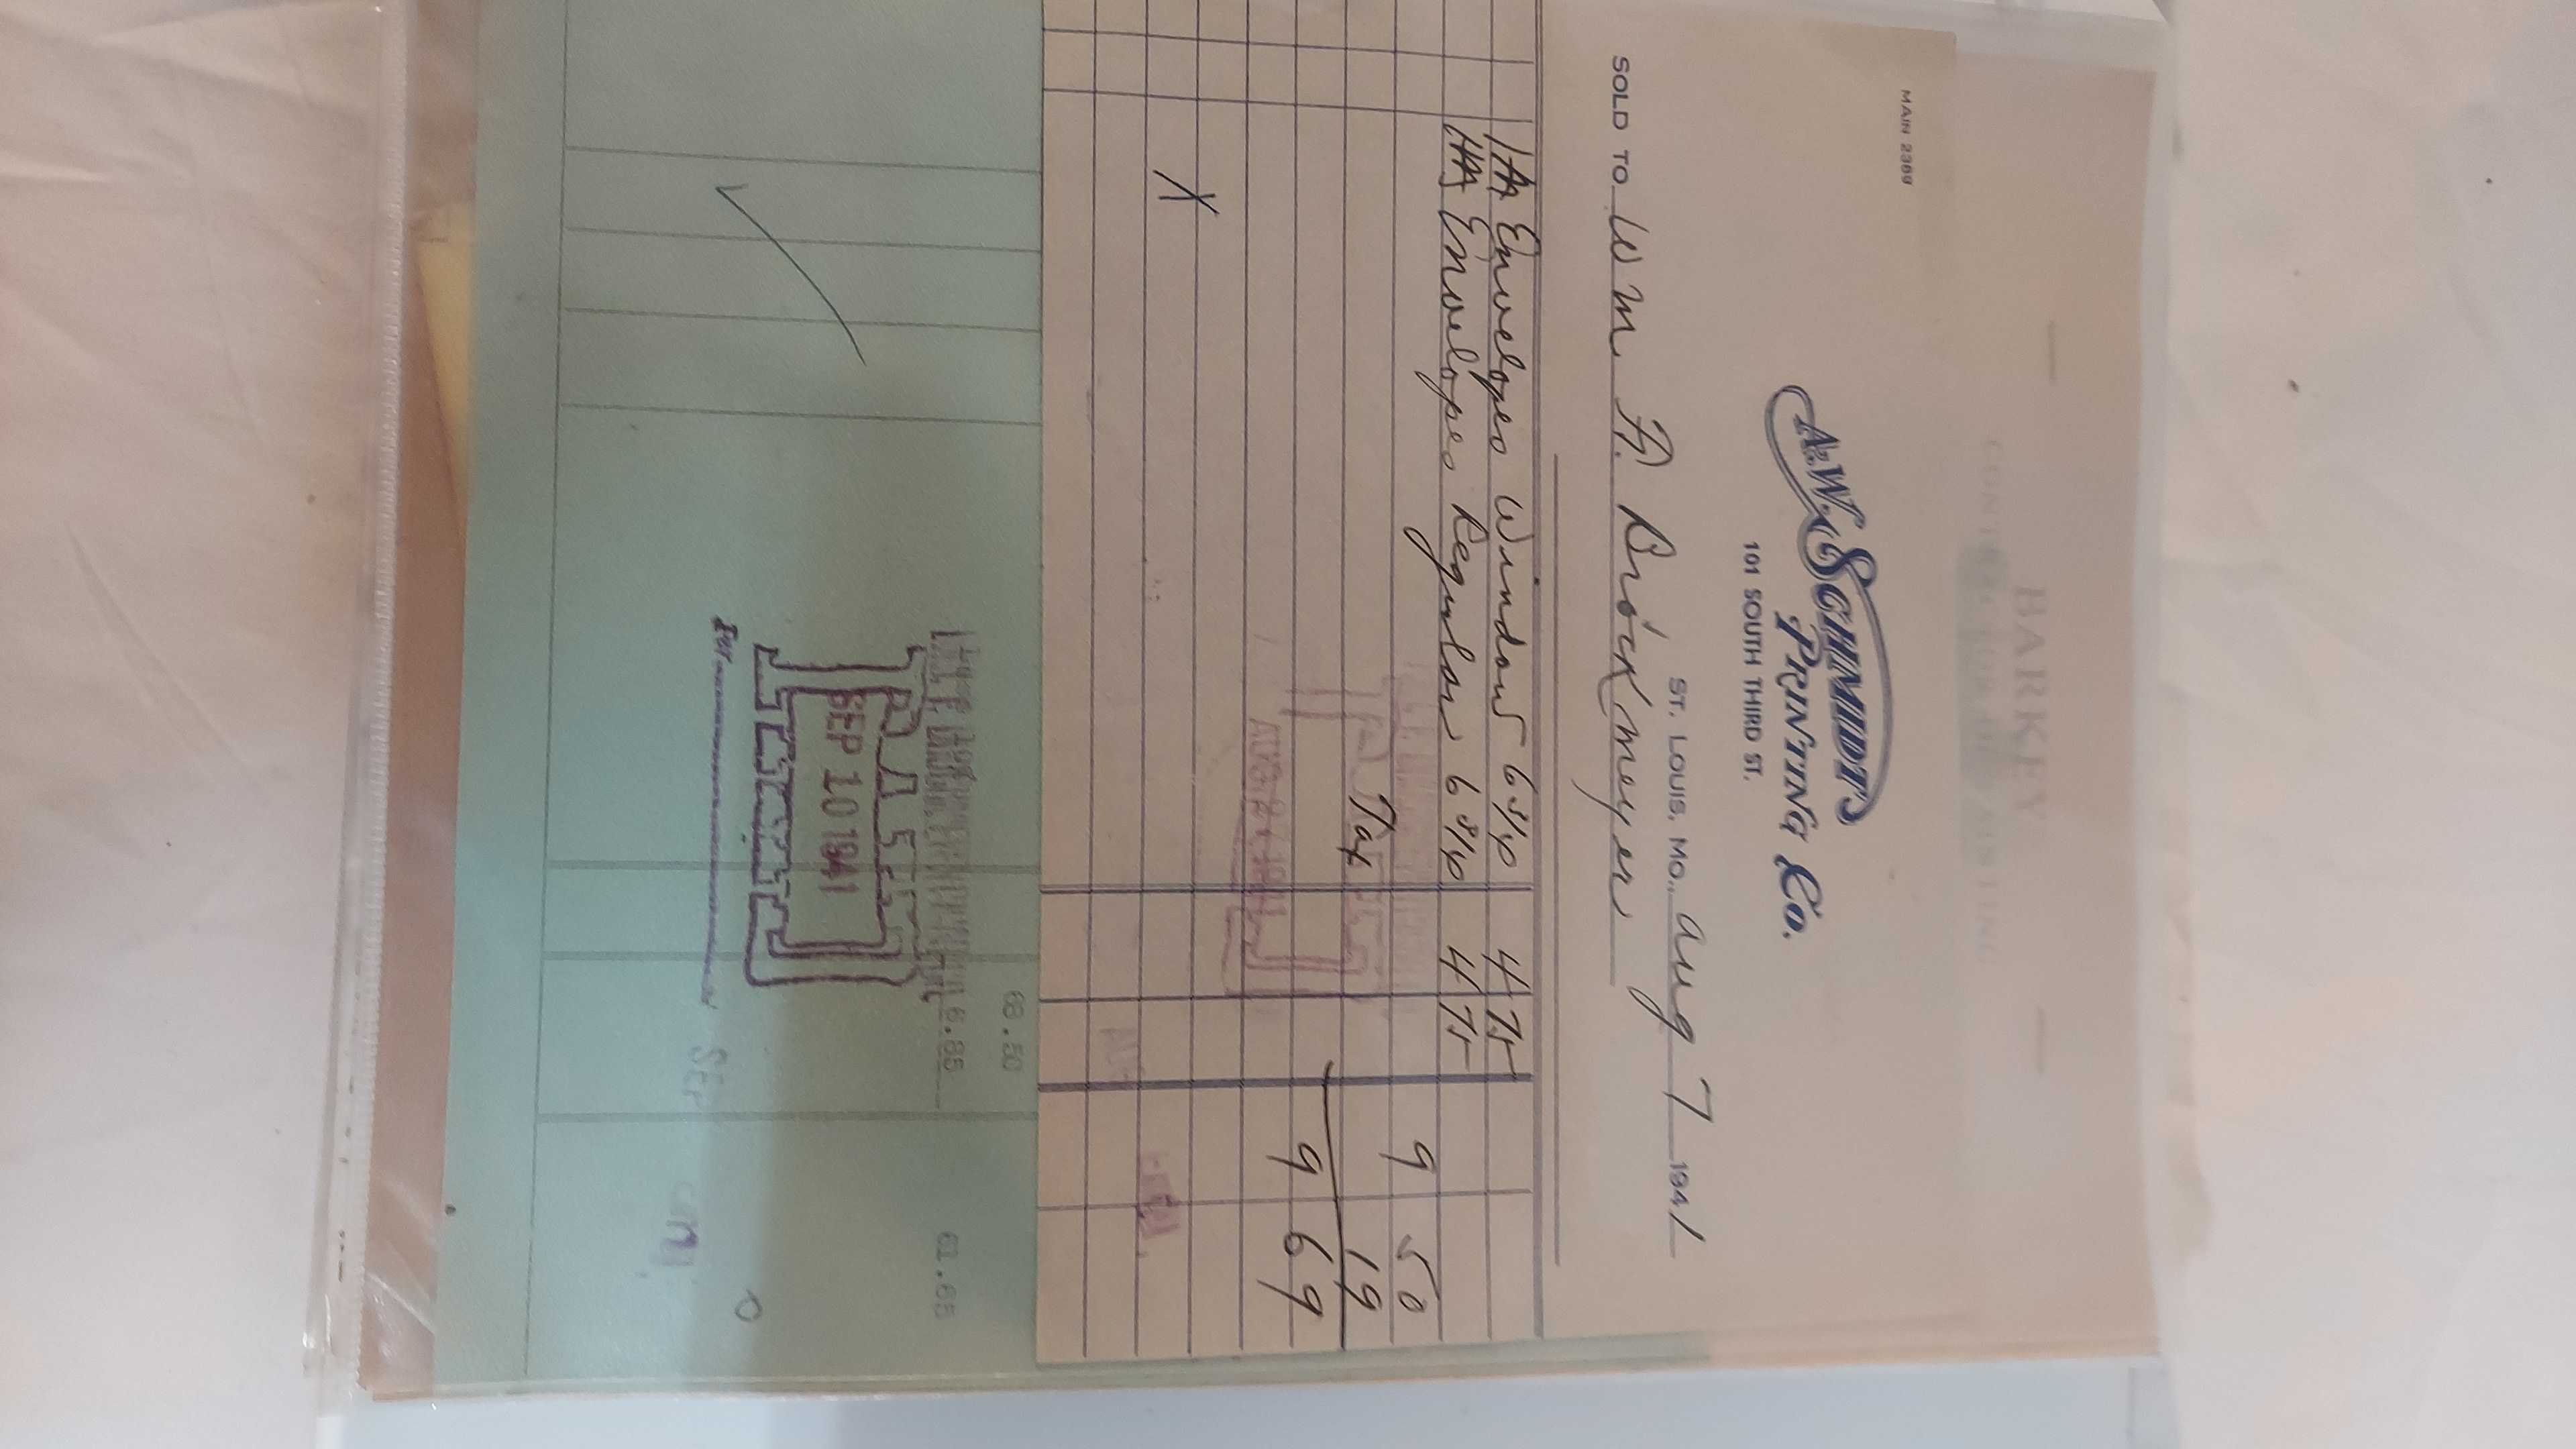 BARKEY
MAIN 2369
A.W. SCHMIDT
PRINTING Co.
101 SOUTH THIRD ST.
ST. LOUIS, MO., Aug 7 1941
SOLD TO Wm F. Brockmeyer
Envelopes Window 6 3/4 4 75
Envelopes Regular 6 3/4 4 75
9 50
Tax 19
9 69
X
68.50
6.85
61.65
SEP 10 1941
SEP